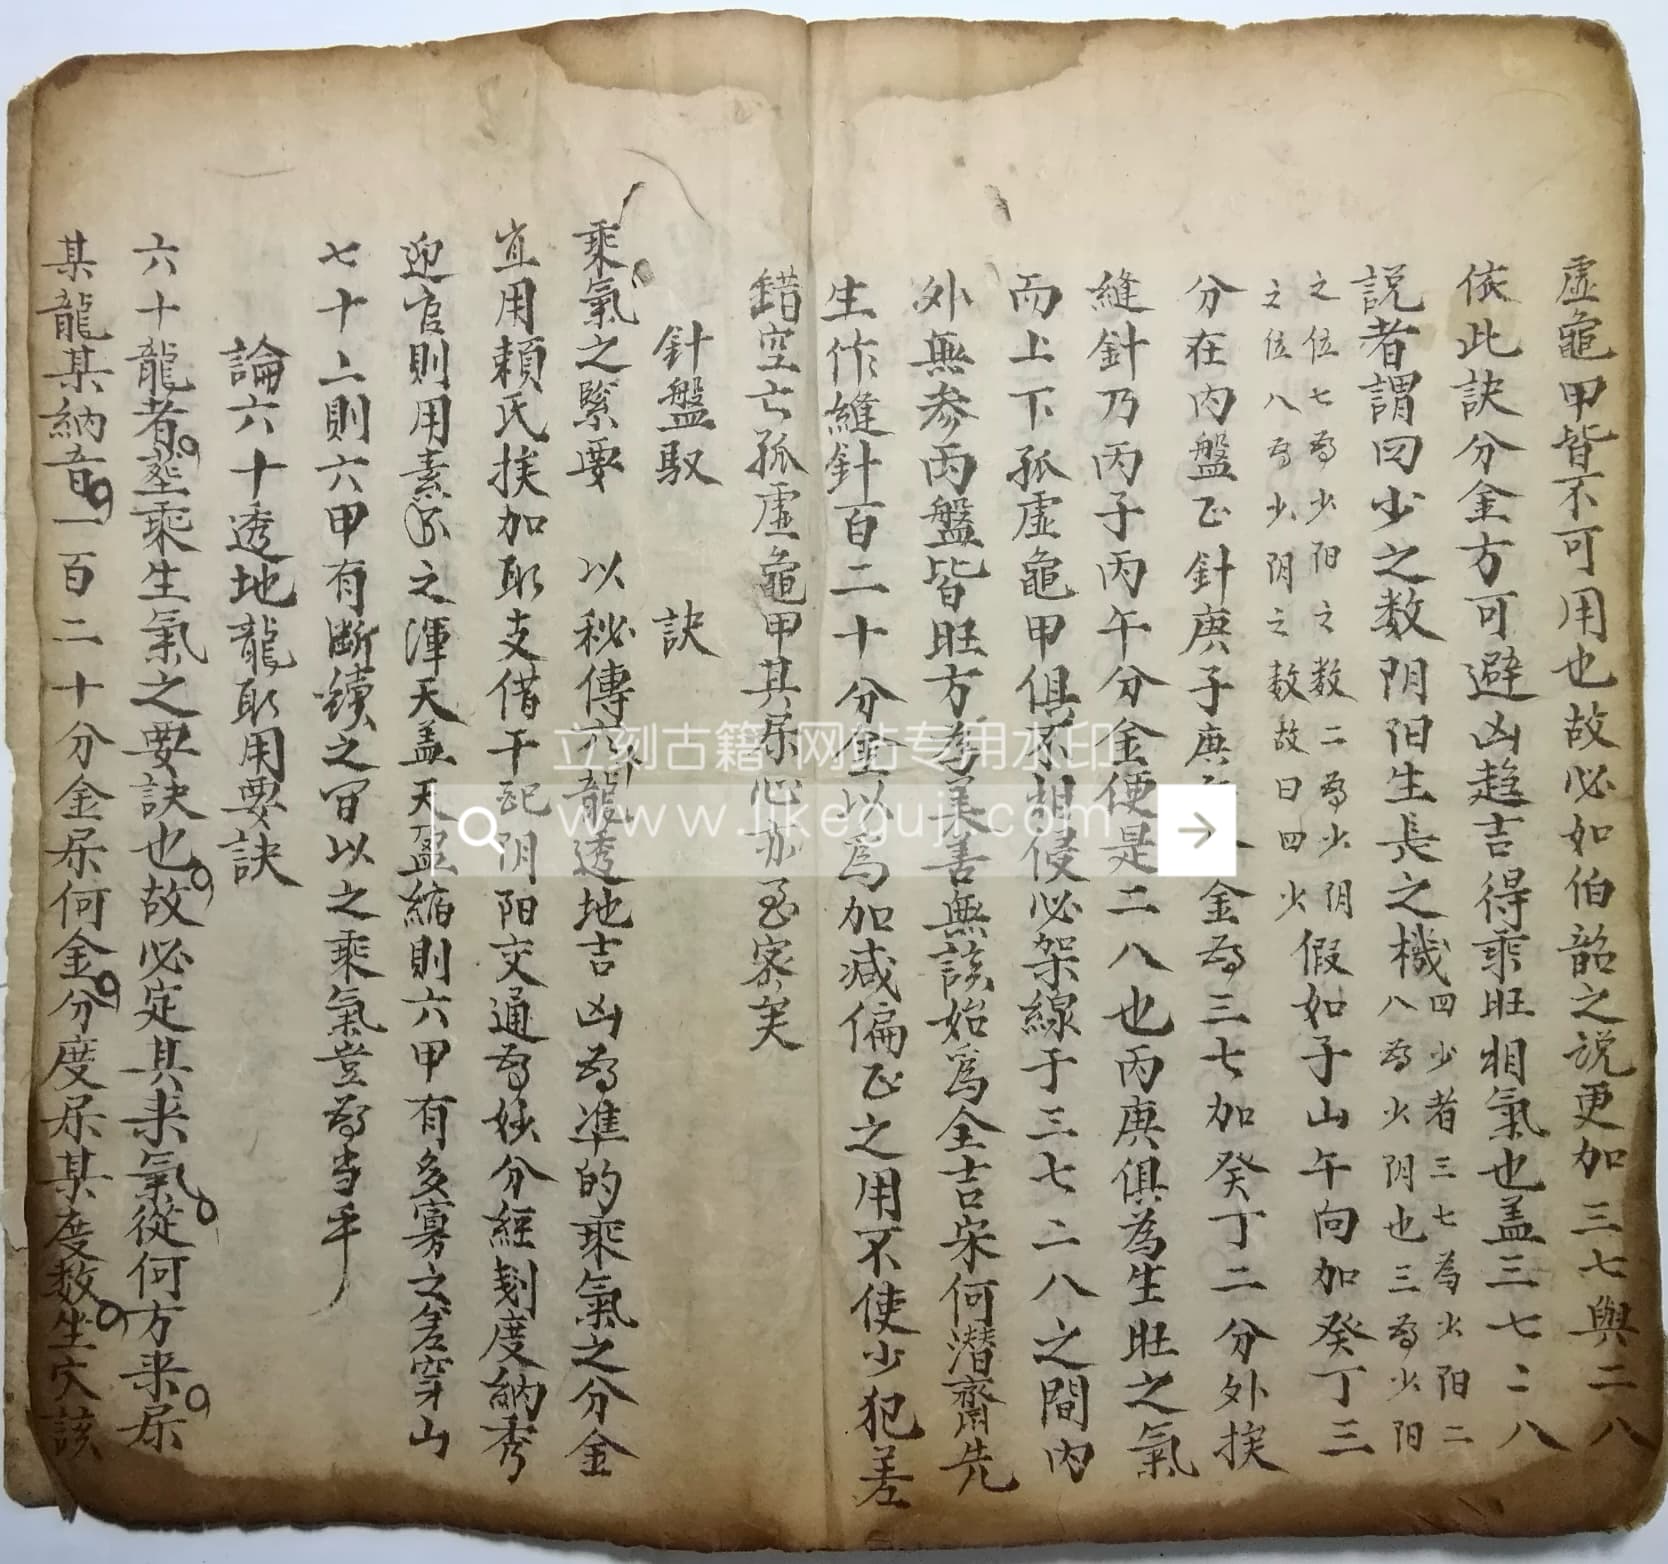 虛龜甲皆不可用也故必如伯韶之説更加三七與二八
依此訣分金方可避凶趋吉得乘旺相氣也盖三七二八
説者謂曰少之数阴阳生長之機
四少者三七為少阳二
八為少阴也三為少阳
之位七為少阳之数二為少阴
之位八為少阴之数故曰四少
假如子山午向加癸丁三
分在内盤正針庚子庚 金為三七加癸丁二分外挨
縫針乃丙子丙午分金便是二八也丙庚俱為生旺之氣
而上下孤虛龜甲俱不相侵必架線于三七二八之間内
外無参兩盤皆旺方為美善無該始爲全吉宋何潜齋先
生作縫針百二十分金以爲加減偏正之用不使少犯差
錯空亡孤虛龜甲其 心亦至密矣
針盤馭 訣
乘氣之緊要 以秘傳六龍透地吉凶為準的乘氣之分金
宜用賴氏挨加取支借干配阴阳交通為妙分經刻度納秀
迎官則用素 之渾天盖天盈縮則六甲有多寡之差穿山
七十二則六甲有斷續之 以之乘氣豈為当乎
論六十透地龍取用要訣
六十龍者塟乘生氣之要訣也故必定其来氣從何方来
某龍某納音一百二十分金 何金分度 某度数坐穴該
立刻古籍 网站专用水印
www.likeguji.com